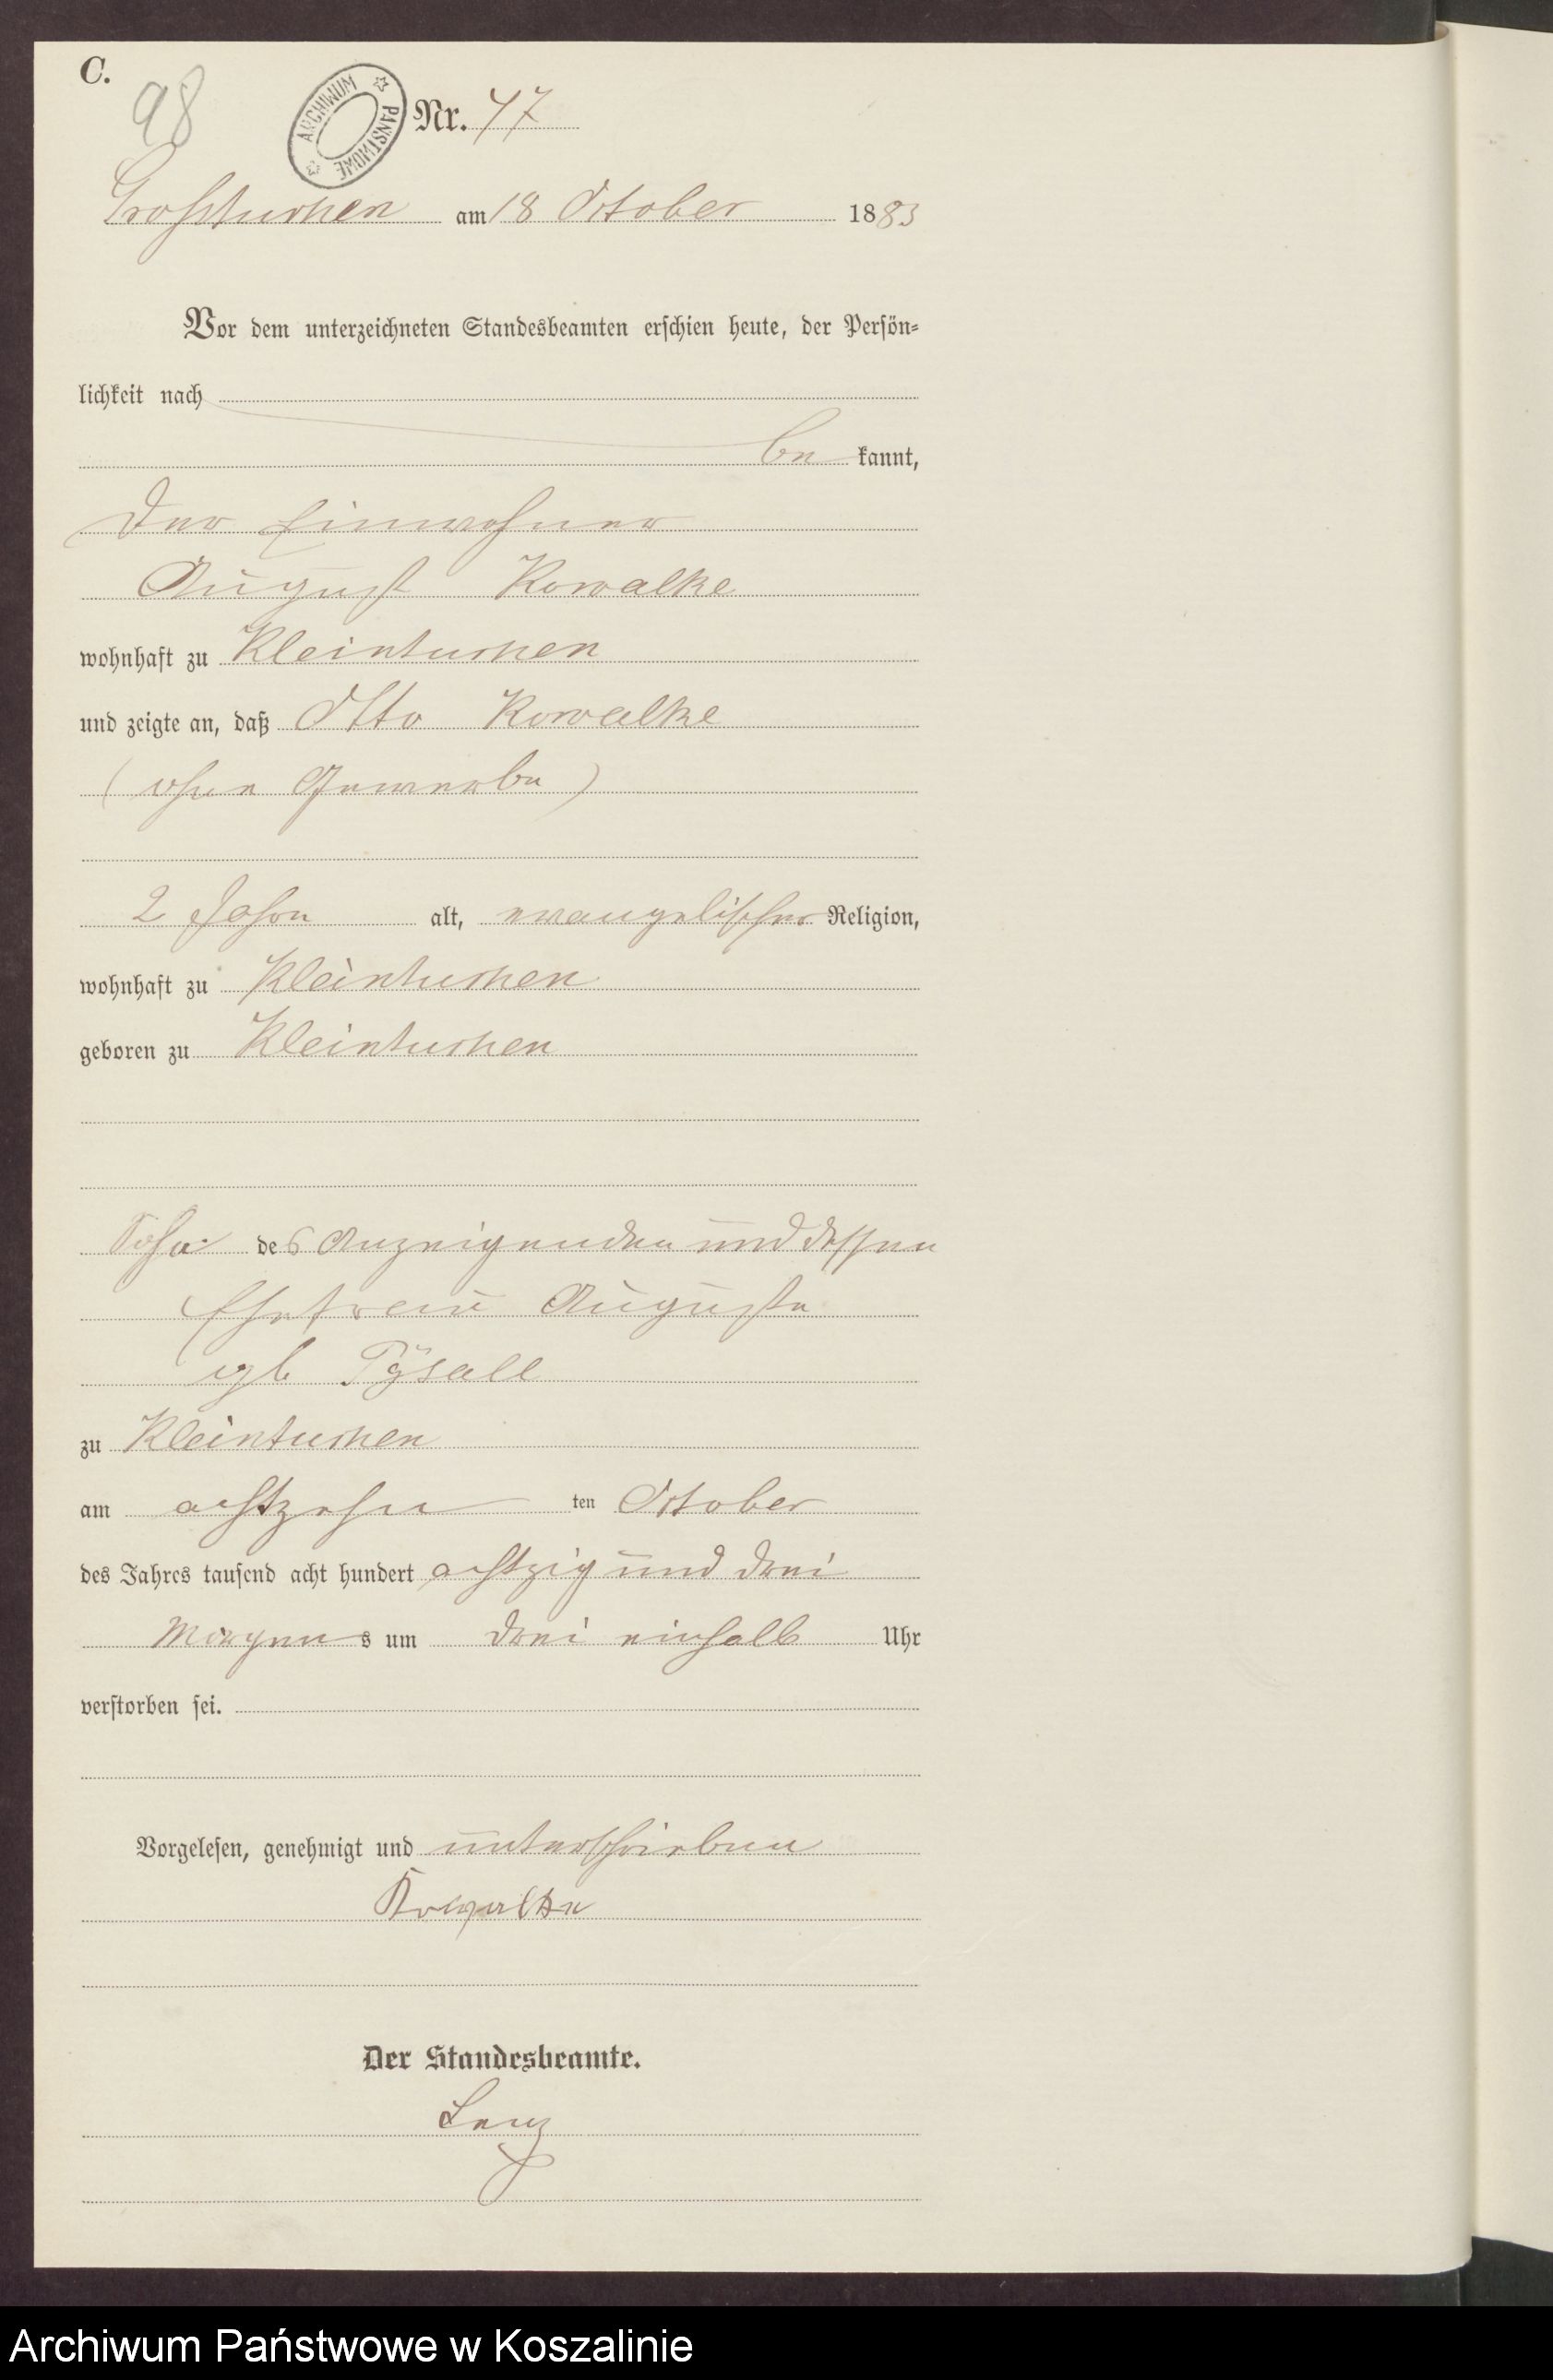 C.
98
ARCHIWUM PAŃSTWOWE
Nr. 47
Grosstuchen am 18 October 1883
Vor dem unterzeichneten Standesbeamten erschien heute, der Persön-
lichkeit nach
be kannt,
der Einwohner
August Kowalke
wohnhaft zu Kleintuchen
und zeigte an, daß Otto Kowalke
(ohne Gewerbe)
2 Jahre alt, evangelischer Religion,
wohnhaft zu Kleintuchen
geboren zu Kleintuchen
Sohn des Anzeigenden und dessen
Ehefrau Auguste
geb
zu Kleintuchen
am achtzehn ten October
des Jahres tausend acht hundert achtzig und drei
Morgens um drei einhalb Uhr
verstorben sei.
Vorgelesen, genehmigt und unterschrieben
Kowalke
Der Standesbeamte.
Lenz
Archiwum Państwowe w Koszalinie